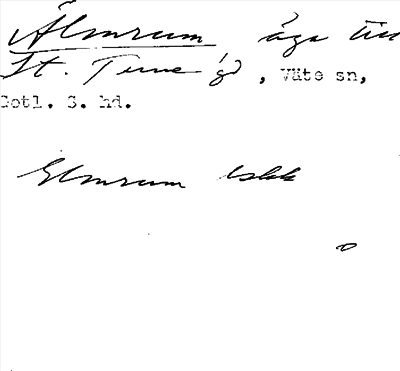 Älmrum äga till
St. Tune gd, Väte sn,
Gotl. S. hd.
Elmrum Uskk